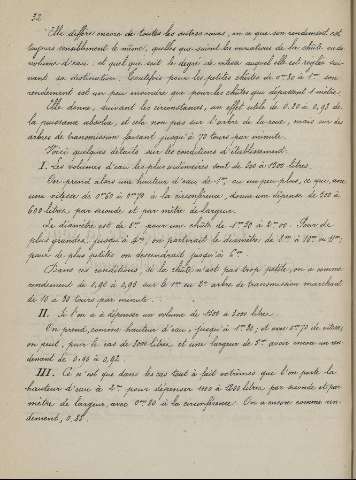 32
Elle diffère encore de toutes les autres roues, en ce que son rendement est
toujours sensiblement le même, quelles que soient les variations de la chûte ou du
volume d'eau, et quel que soit le degré de vitesse auquel elle est réglée sui-
vant sa destination. Toutefois pour les petites chûtes de 0m80 à 1m son
rendement est un peu moindre que pour les chûtes qui dépassent 2 mètres.
Elle donne, suivant les circonstances, un effet utile de 0.80 à 0,93 de
la puissance absolue, et cela non pas sur l'arbre de la roue, mais sur des
arbres de transmission faisant jusqu'à 70 tours par minute.
Voici quelques détails sur les conditions d'établissement.
I. Les volumes d'eau les plus ordinaires sont de 200 à 1200 litres.
On prend alors une hauteur d'eau de 1m, ou un peu plus, ce qui, avec
une vitesse de 0m60 à 0m70 à la circonférence, donne une dépense de 500 à
600 litres, par seconde et par mètre de largeur.
Le diamètre est de 8m pour une chûte de 1m20 à 2m00. Pour de
plus grandes, jusqu'à 4m, on porterait le diamètre de 9m à 10m ou 11m;
pour de plus petites on descendrait jusqu'à 6m
Dans ces conditions, si la chûte n'est pas trop petite, on a comme
rendement de 0,90 à 0,93 sur le 1er ou 2e arbre de transmission marchant
de 10 à 30 tours par minute.
II. Si l'on a à dépenser un volume de 1500 à 3000 litres.
On prend, comme hauteur d'eau, jusqu'à 1m30; et avec 0m70 de vitesse,
on peut, pour le cas de 3000 litres et une largeur de 5m avoir encore un ren-
dement de 0,88 à 0,92.
III. Ce n'est que dans les cas tout à fait extrêmes que l'on porte la
hauteur d'eau à 2m pour dépenser 1000 à 1200 litres par seconde et par
mètre de largeur, avec 0m80 à la circonférence. On a encore comme ren-
dement, 0,85.